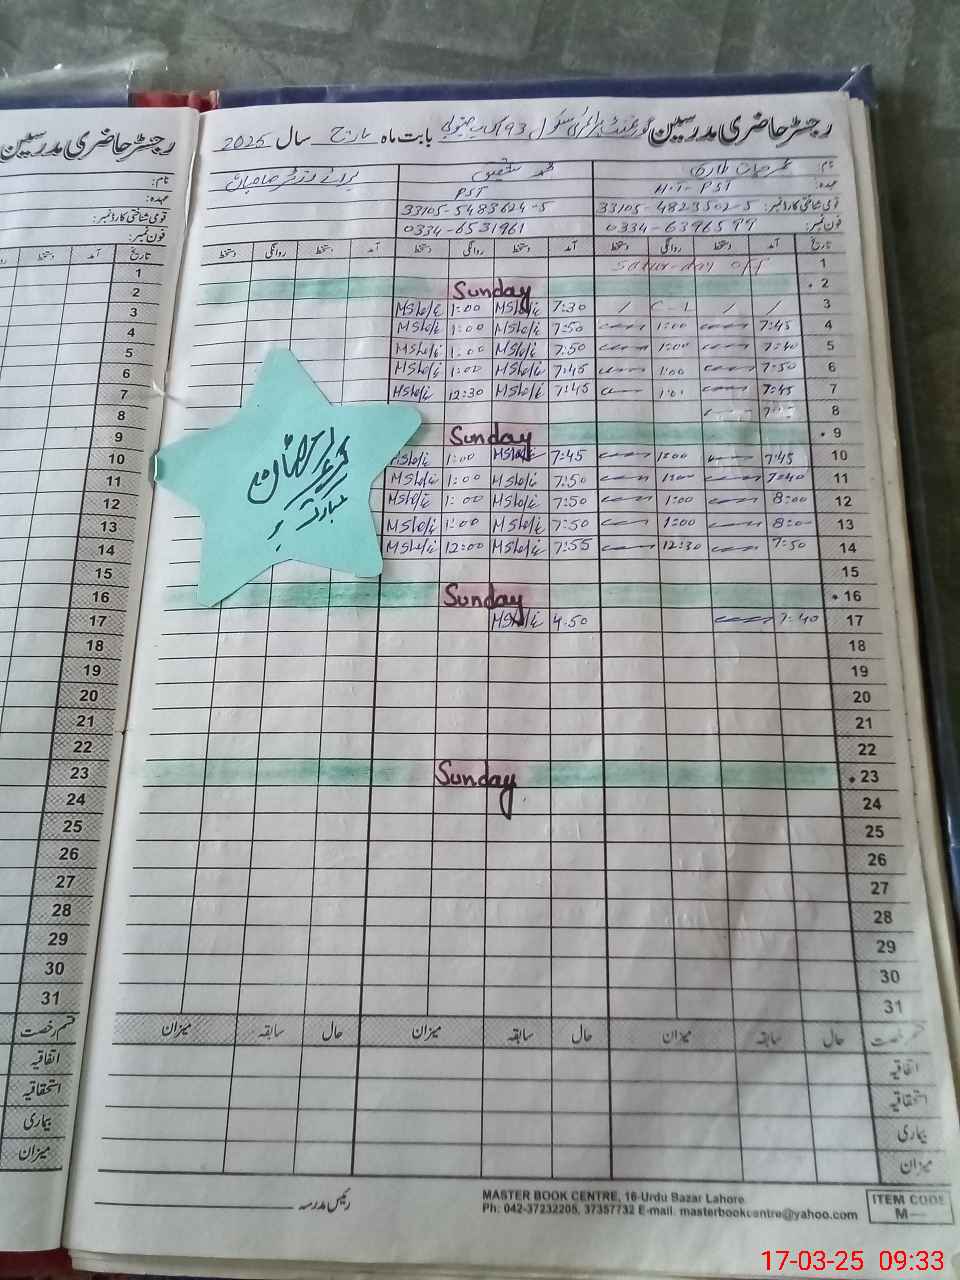 رجسٹر حاضری مدرسین گورنمنٹ پرائمری سکول 193 گ ب جنوبی بابت ماہ مارچ سال 2025
نام: عمر حیات طاری محمد شفیق برائے وزٹر صاحبان
عہدہ: H.T- PST PST
قومی شناختی کارڈ نمبر: 33105-4823502-5 33105-5483624-5
فون نمبر: 0334-6396599 0334-6531961
تاریخ آمد دستخط روانگی دستخط آمد دستخط روانگی دستخط آمد دستخط روانگی دستخط
1 Satur-day off
2 Sunday
3 / / C-L / 7:30 1:00
4 7:45 1:00 7:50 1:00
5 7:40 1:00 7:50 1:00
6 7:50 1:00 7:45 1:00
7 7:45 7:45 12:30
8
9 Sunday
10 7:45 1:00 7:45 1:00
11 7:40 1:00 7:50 1:00
12 8:00 1:00 7:50 1:00
13 8:00 1:00 7:50 1:00
14 7:50 12:30 7:55 12:00
15
16 Sunday
17 7:40
18
19
20
21
22
23 Sunday
24
25
26
27
28
29
30
31
قسم رخصت حال سابقہ میزان حال سابقہ میزان حال سابقہ میزان
اتفاقیہ
استحقاقیہ
بیماری
میزان
رئیس مدرسہ
MASTER BOOK CENTRE, 16-Urdu Bazar Lahore
Ph: 042-37232205, 37357732 E-mail. masterbookcentre@yahoo.com
ITEM CODE
M—
رمضان
مبارک
رجسٹر حاضری مدرسین
نام:
عہدہ:
قومی شناختی کارڈ نمبر:
فون نمبر:
تاریخ آمد دستخط
1
2
3
4
5
6
7
8
9
10
11
12
13
14
15
16
17
18
19
20
21
22
23
24
25
26
27
28
29
30
31
قسم رخصت
اتفاقیہ
استحقاقیہ
بیماری
میزان
17-03-25 09:33